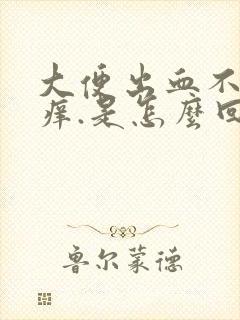 大便出血不
痒.是怎麼回
鲁尔蒙德